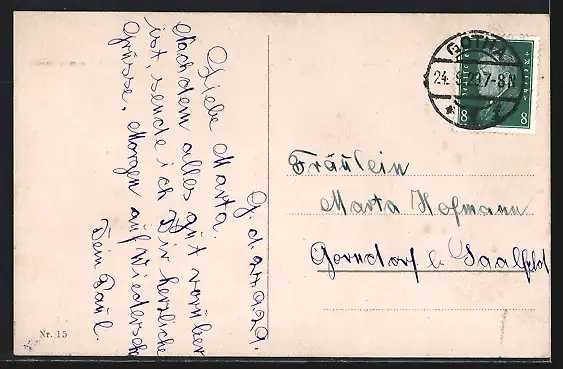 G. d. 24.9.1929.
Liebe Marta.
Nachdem alles gut vorüber
ist, sende ich Dir herzliche
Grüsse. Morgen auf Wiedersehn
Dein Paul.
GOTHA
24. 9. 29 7-8 N
8 8
Fräulein
Marta Hofmann
Gorndorf b. Saalfeld
Nr. 15